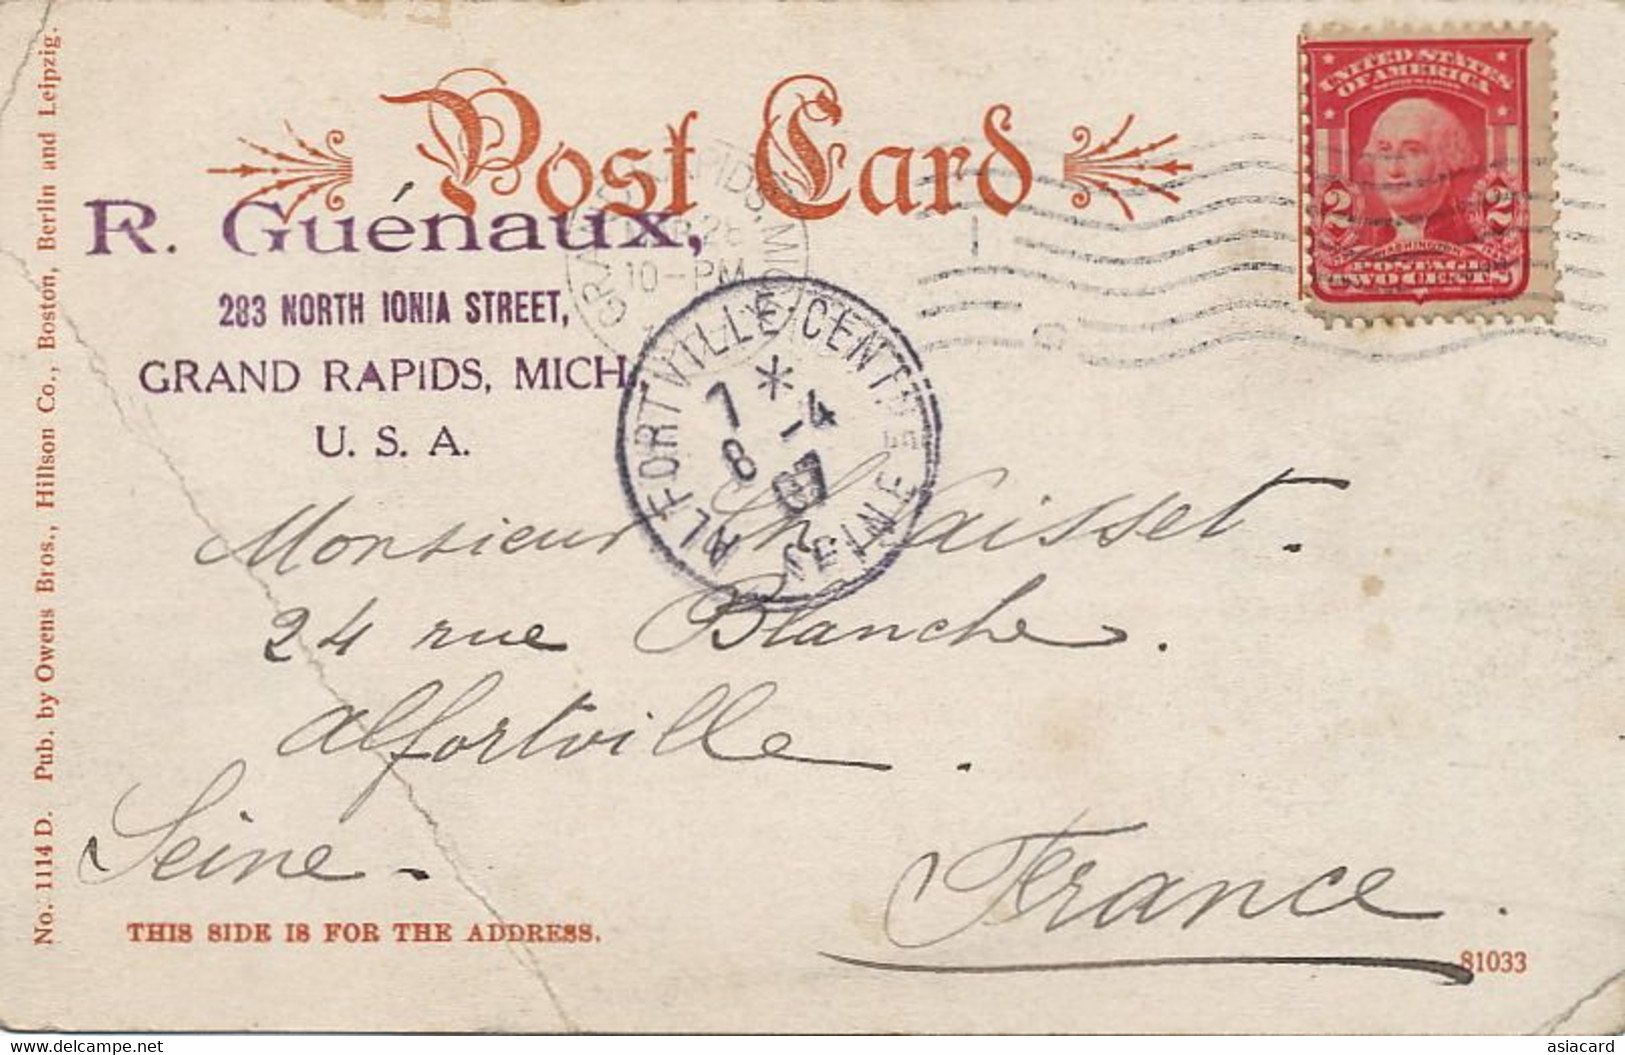 No. 1114 D. Pub. by Owens Bros., Hillson Co., Boston, Berlin and Leipzig.
Post Card
UNITED STATES
OF AMERICA
2 2
WASHINGTON
POSTAGE
TWO CENTS
R. Guénaux,
283 NORTH IONIA STREET,
GRAND RAPIDS, MICH.
U. S. A.
GRAND RAPIDS, MICH
26
10-PM
ALFORTVILLE CENTRE
7 * -4
8 07
SEINE
Monsieur Ch
24 rue Blanche.
Alfortville.
Seine.
France.
THIS SIDE IS FOR THE ADDRESS.
81033
www.delcampe.net
asiacard